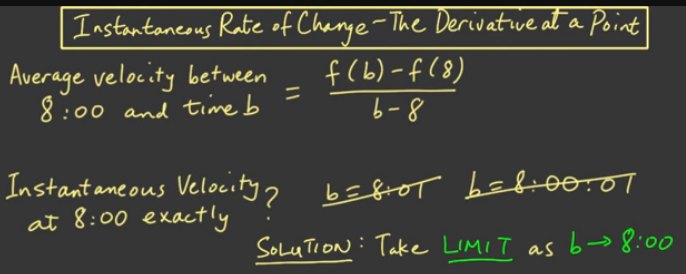 Instantaneous Rate of Change - The Derivative at a Point
Average velocity between
8:00 and time b
= f(b) - f(8)
b - 8
Instantaneous Velocity?
at 8:00 exactly
b = 8:01 b = 8:00:01
SOLUTION: Take LIMIT as b → 8:00